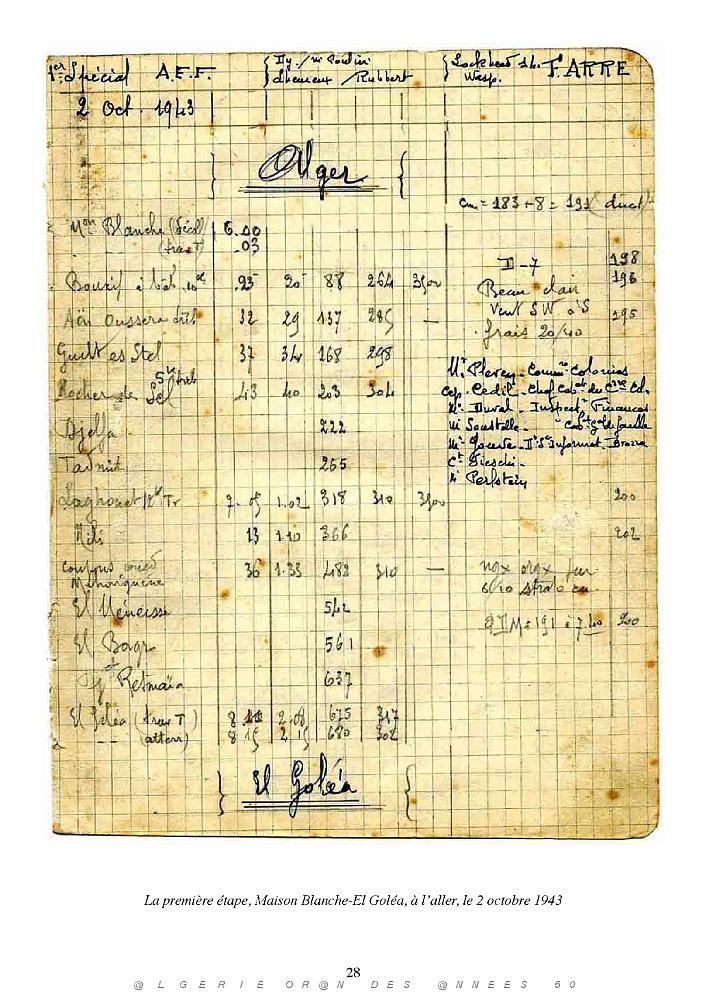 1er Spécial A.E.F.
Lockheed 14. F.ARRE
Wasp.
2 Oct. 1943
Alger
cm = 183 + 8 = 191 (duct)
Mon Blanche (décoll) 6.00
(trav T) .03
D - 7 198
.25 20 88 264 3500 Beau clair 196
Aïn Oussera 32 29 137 285 — Vent SW à S 195
frais 20/40
Guelt es Stel 37 34 168 298
Rocher de Sel 43 40 203 304
Mr Pleven - Commre Colonies
Cap. Cédile - Chef Cabt du Cre Col.
Mr Duval - Inspect. Finances
Mr Soustelle - Cabt gal de Gaulle
Informat. Brazza
Mr Perlstein
Djelfa 222
Tadmit 265
Laghouat Tr 7.05 1.02 318 310 3500 200
13 1.10 366 202
36 1.33 482 310 —
6/10 strato cu
542
191 à 7.40 200
El 561
Retmaïa 637
El Goléa (trav T) 8. 2.08 675 317
— (atterr) 8 15 2 15 680 302
El Goléa
La première étape, Maison Blanche-El Goléa, à l’aller, le 2 octobre 1943
28
@ L G E R I E O R @ N D E S @ N N E E S 5 0